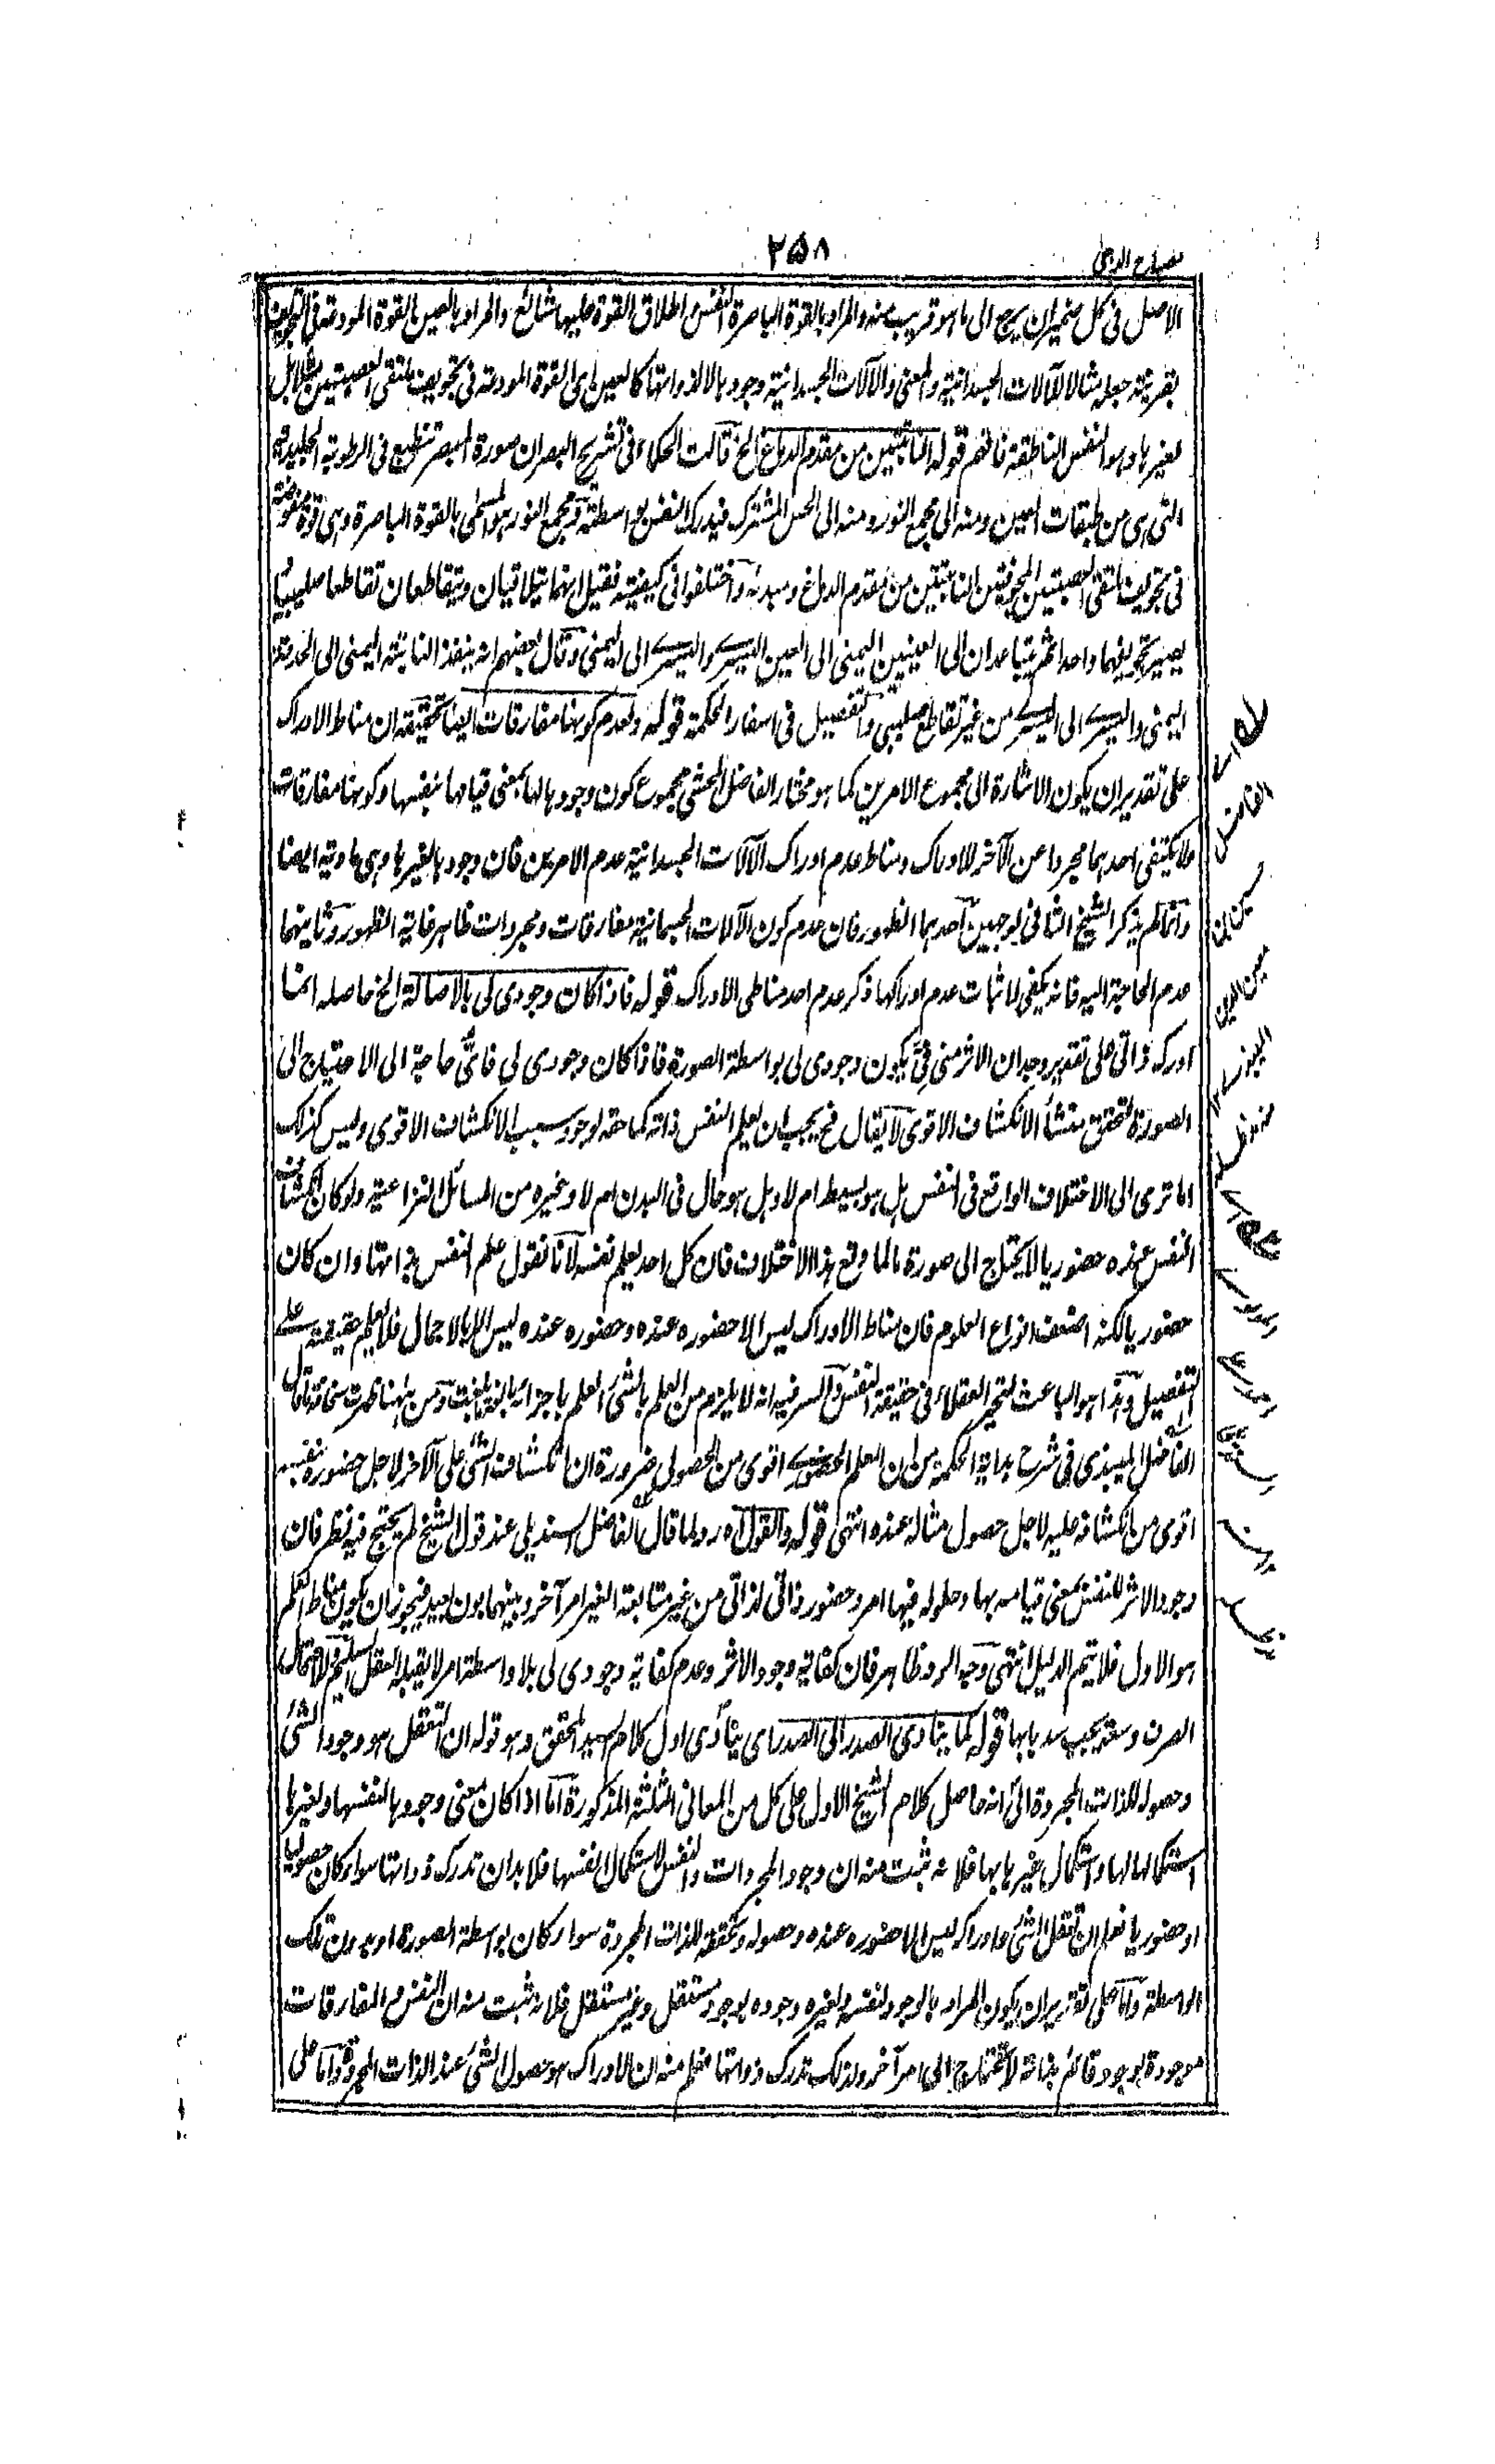 ٢٥٨
مصباح الدجى
الاصل فى كل ضمير ان يرجع الى ما هو قريب منه والمراد بالقوة الباصرة النفس واطلاق القوة عليها شائع والمراد بالعين القوة المودعة فى التجويف
بقرينة جعله مثالا للآلات الجسدانية والمعنى والآلات الجسدانية وجودها لا لذواتها كالعين اى القوة المودعة فى تجويف ملتقى العصبتين مثلا بل
لغيرها وهو النفس الناطقة فافهم قوله النابتتين من مقدم الدماغ الخ قالت الحكماء فى تشريح البصر ان صورة المبصر تنطبع فى الرطوبة الجليدية
التى هى من طبقات العين ومنه الى مجمع النور ومنه الى الحس المشترك فيدرك النفس بواسطته ومجمع النور هو المسمى بالقوة الباصرة وهى قوة مفوضة
فى تجويف ملتقى العصبتين المجوفتين النابتتين من مقدم الدماغ ومبدئه واختلفوا فى كيفيته فقيل انهما يتلاقيان ويتقاطعان تقاطعا صليبيا
يصير تجويفهما واحدا ثم يتباعدان الى العينين اليمنى الى العين اليسرى واليسرى الى اليمنى وقال بعضهم انه ينفذ النابتة اليمنى الى الحدقة
اليمنى واليسرى الى اليسرى من غير تقاطع صليبى والتفصيل فى اسفار الحكمة قوله ولعدم كونها مفارقات ايضا تحقيقه ان مناط الادراك
على تقدير ان يكون الاشارة الى مجموع الامرين كما هو مختار الفاضل المحشى مجموع كون وجودها لها بمعنى قيامها بنفسها وكونها مفارقات
فلا يكتفى احدهما مجردا عن الآخر للادراك ومناط عدم ادراك الآلات الجسدانية عدم الامرين فان وجودها لغيرها وهى مادية ايضا
وانما لم يذكر الشيخ الثانى لوجهين احدهما الظهور فان عدم كون الآلات الجسمانية مفارقات ومجردات ظاهر غاية الظهور وثانيهما
عدم الحاجة اليه فانه يكفى لاثبات عدم ادراكها ذكر عدم احد مناطى الادراك قوله فاذا كان وجودى لى بالاصالة الخ حاصله انما
ادرك ذاتى على تقدير وجدان الاثر منى فى يكون وجودى لى بواسطة الصورة فاذا كان وجودى لى فاىّ حاجة الى الاحتياج الى
الصورة لتحقق منشأ الانكشاف الاقوى لا يقال فح يجب ان يعلم النفس ذاته كما حقه لوجود سبب الانكشاف الاقوى وليس كذلك
اما ترى الى الاختلاف الواقع فى النفس هل هو بسيط ام لا وهل هو حال فى البدن ام لا وغيره من المسائل النزاعية ولو كان انكشاف
النفس عنده حضوريا لا يحتاج الى صورة ما لما وقع هذا الاختلاف فان كل احد يعلم نفسه لانا نقول علم النفس بذاتها وان كان
حضوريا لكنه اضعف انواع العلوم فان مناط الادراك ليس الا حضوره عنده وحضوره عنده ليس الا بالاجمال فلا يعلم حقيقته على
التفصيل وهذا هو الباعث لتحير العقلاء فى حقيقة النفس والسر فيه انه لا يلزم من العلم بالشئ العلم باجزائه بالغة ما بلغت ومن ههنا ظهرت سخافة ما قال
الفاضل الميبذى فى شرح بداية الحكمة من ان العلم الحضورى اقوى من الحصولى ضرورة ان انكشاف الشئ على الآخر لاجل حضوره بنفسه
اقوى من انكشافه عليه لاجل حصول مثاله عنده انتهى قوله والقول آه رد لما قال الفاضل السنديلى عند قول الشيخ لم يحتج فيه نظر فان
وجود الاثر للنفس بمعنى قيامه بها وحلوله فيها امر وحضور ذاتى لذاتى من غير متابعة الغير امر آخر وبينهما بون بعيد فيجوز ان يكون مناط العلم
هو الاول فلا يتم الدليل انتهى وجه الرد ظاهر فان كفاية وجود الاثر وعدم كفاية وجودى لى بلا واسطة امر لا يقبله العقل السليم والاحتمال
الصرف وسعته يجب سد بابها قوله كما ينادى الصدر الى الصدر اى ينادى اول كلام السيد المحقق وهو قوله ان التعقل هو وجود الشئ
وحصوله للذات المجردة الى انه حاصل كلام الشيخ الاول على كل من المعانى الثلثة المذكورة اما اذا كان معنى وجودها لنفسها ولغيرها
استكمالها لها واستكمال غيرها بها فلانه ثبت منه ان وجود المجردات والنفس لاستكمال انفسها فلا بد ان تدرك ذواتها سواء كان حصوليا
او حضوريا فعلم ان تعقل الشئ وادراكه ليس الا حضوره عنده وحصوله وتحققه للذات المجردة سواء كان بواسطة الصورة او بدون تلك
الواسطة واما على تقدير ان يكون المراد بالوجود لنفسه ولغيره وجوده بوجود مستقل وغير مستقل فلانه ثبت منه ان النفس والمفارقات
موجودة بوجود قائم بذاته لا تحتاج الى امر آخر ولذلك تدرك ذواتها فعلم منه ان الادراك هو حصول الشئ عند الذات المجردة واما على
الفاضل
حسين بن
معين الدين